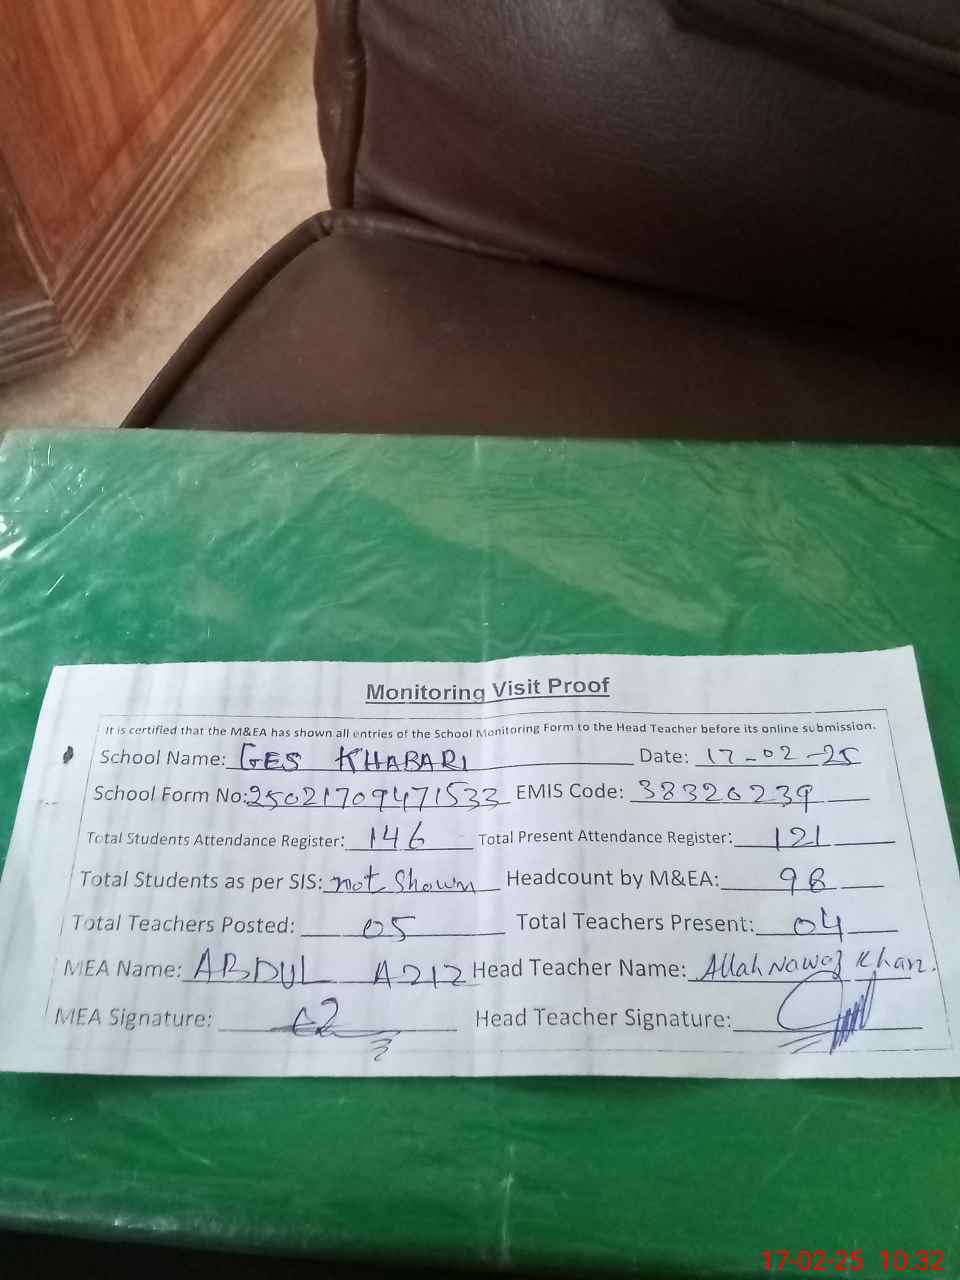 Monitoring Visit Proof
It is certified that the M&EA has shown all entries of the School Monitoring Form to the Head Teacher before its online submission.
School Name: GES KHABARI Date: 17-02-25
School Form No: 250217094715​33 EMIS Code: 38320239
Total Students Attendance Register: 146 Total Present Attendance Register: 121
Total Students as per SIS: not Shown Headcount by M&EA: 98
Total Teachers Posted: 05 Total Teachers Present: 04
MEA Name: ABDUL AZIZ Head Teacher Name: Allah Nawaz Khan.
MEA Signature: Head Teacher Signature:
17-02-25 10:32